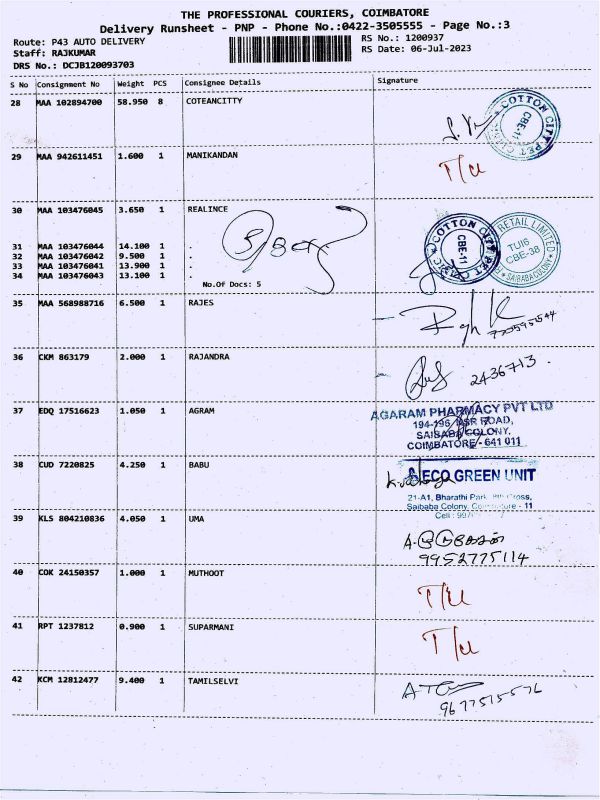 THE PROFESSIONAL COURIERS, COIMBATORE
Delivery Runsheet - PNP - Phone No.:0422-3505555 - Page No.:3
Route: P43 AUTO DELIVERY RS No.: 1200937
Staff: RAJKUMAR RS Date: 06-Jul-2023
DRS No.: DCJB120093703
S No Consignment No Weight PCS Consignee Details Signature
28 MAA 102894700 58.950 8 COTEANCITTY
COTTON CITY PET CLINIC
CBE-11
29 MAA 942611451 1.600 1 MANIKANDAN T/U
30 MAA 103476045 3.650 1 REALINCE
COTTON CITY PET CLINIC
CBE-11
RETAIL LIMITED
TUI6
CBE-38
SAIBABA COLONY
31 MAA 103476044 14.100 1 .
32 MAA 103476042 9.500 1 .
33 MAA 103476041 13.900 1 .
34 MAA 103476043 13.100 1 .
No.Of Docs: 5
35 MAA 568988716 6.500 1 RAJES
36 CKM 863179 2.000 1 RAJANDRA
2436713.
37 EDQ 17516623 1.050 1 AGRAM
AGARAM PHARMACY PVT LTD
194-196, NSR ROAD,
SAIBABA COLONY,
COIMBATORE - 641 011
38 CUD 7220825 4.250 1 BABU
ECO GREEN UNIT
21-A1, Bharathi Park, 8th Cross,
Saibaba Colony, Coimbatore - 11
Cell :
39 KLS 804210836 4.050 1 UMA
9952775114
40 COK 24150357 1.000 1 MUTHOOT T/U
41 RPT 1237812 0.900 1 SUPARMANI T/U
42 KCM 12812477 9.400 1 TAMILSELVI
9677515576